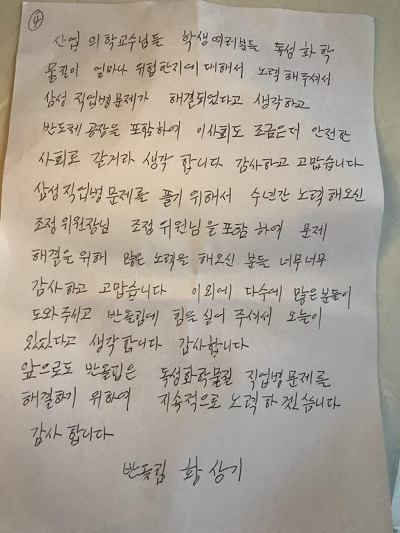 ④
산업 의학교수님들 학생여러분들 독성 화학
물질이 얼마나 위험한지에 대해서 노력 해주셔서
삼성 직업병문제가 해결되었다고 생각하고
반도체 공장을 포함하여 이사회도 조금은더 안전한
사회로 갈거라 생각 합니다 감사하고 고맙습니다
삼성직업병 문제를 풀기 위해서 수년간 노력 해오신
조정위원장님 조정 위원님을 포함 하여 문제
해결을 위해 많은 노력을 해오신 분들 너무너무
감사하고 고맙습니다 이외에 다수에 많은분들이
도와 주시고 반올림에 힘을 실어 주셔서 오늘이
있었다고 생각합니다 감사합니다
앞으로도 반올림은 독성화학물질 직업병 문제를
해결하기 위하여 지속적으로 노력 하겠습니다
감사 합니다
반올림 황 상기